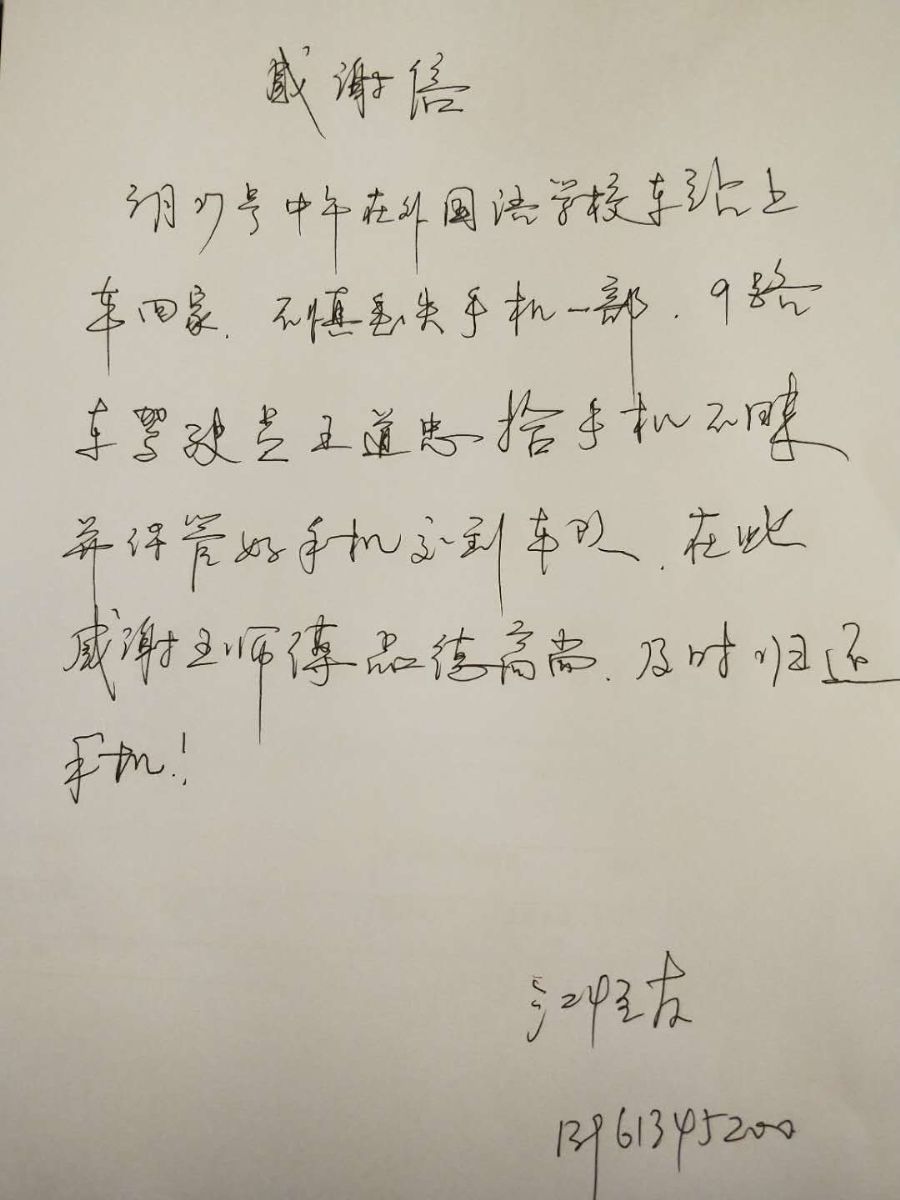 感谢信
3月17号中午在外国语学校车站上
车回家.不慎丢失手机一部.9路
车驾驶员王道忠拾手机不昧
并保管好手机交到车队.在此
感谢王师傅品德高尚.及时归还
手机!
13961345200